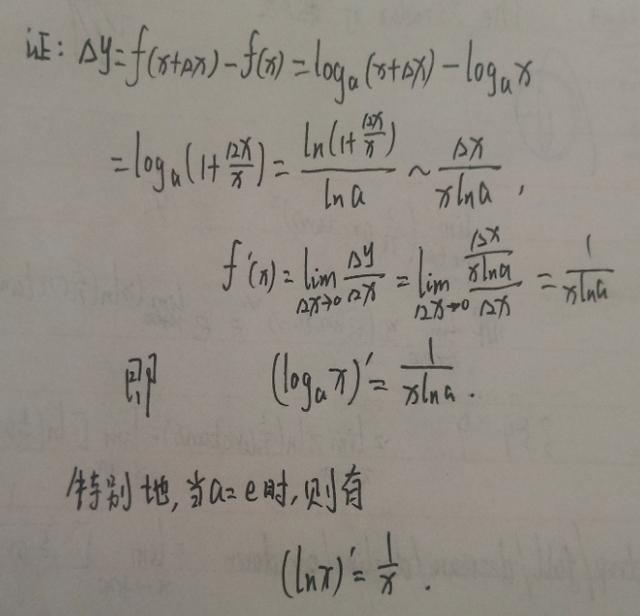 证: Δy=f(x+Δx)-f(x)=logₐ(x+Δx)-logₐx
=logₐ(1+Δx/x)=ln(1+Δx/x)/ln a ~ Δx/(x ln a),
f'(x)=lim_{Δx→0} Δy/Δx = lim_{Δx→0} (Δx/(x ln a))/Δx = 1/(x ln a)
即 (logₐx)'=1/(x ln a).
特别地,当a=e时,则有
(ln x)'=1/x.